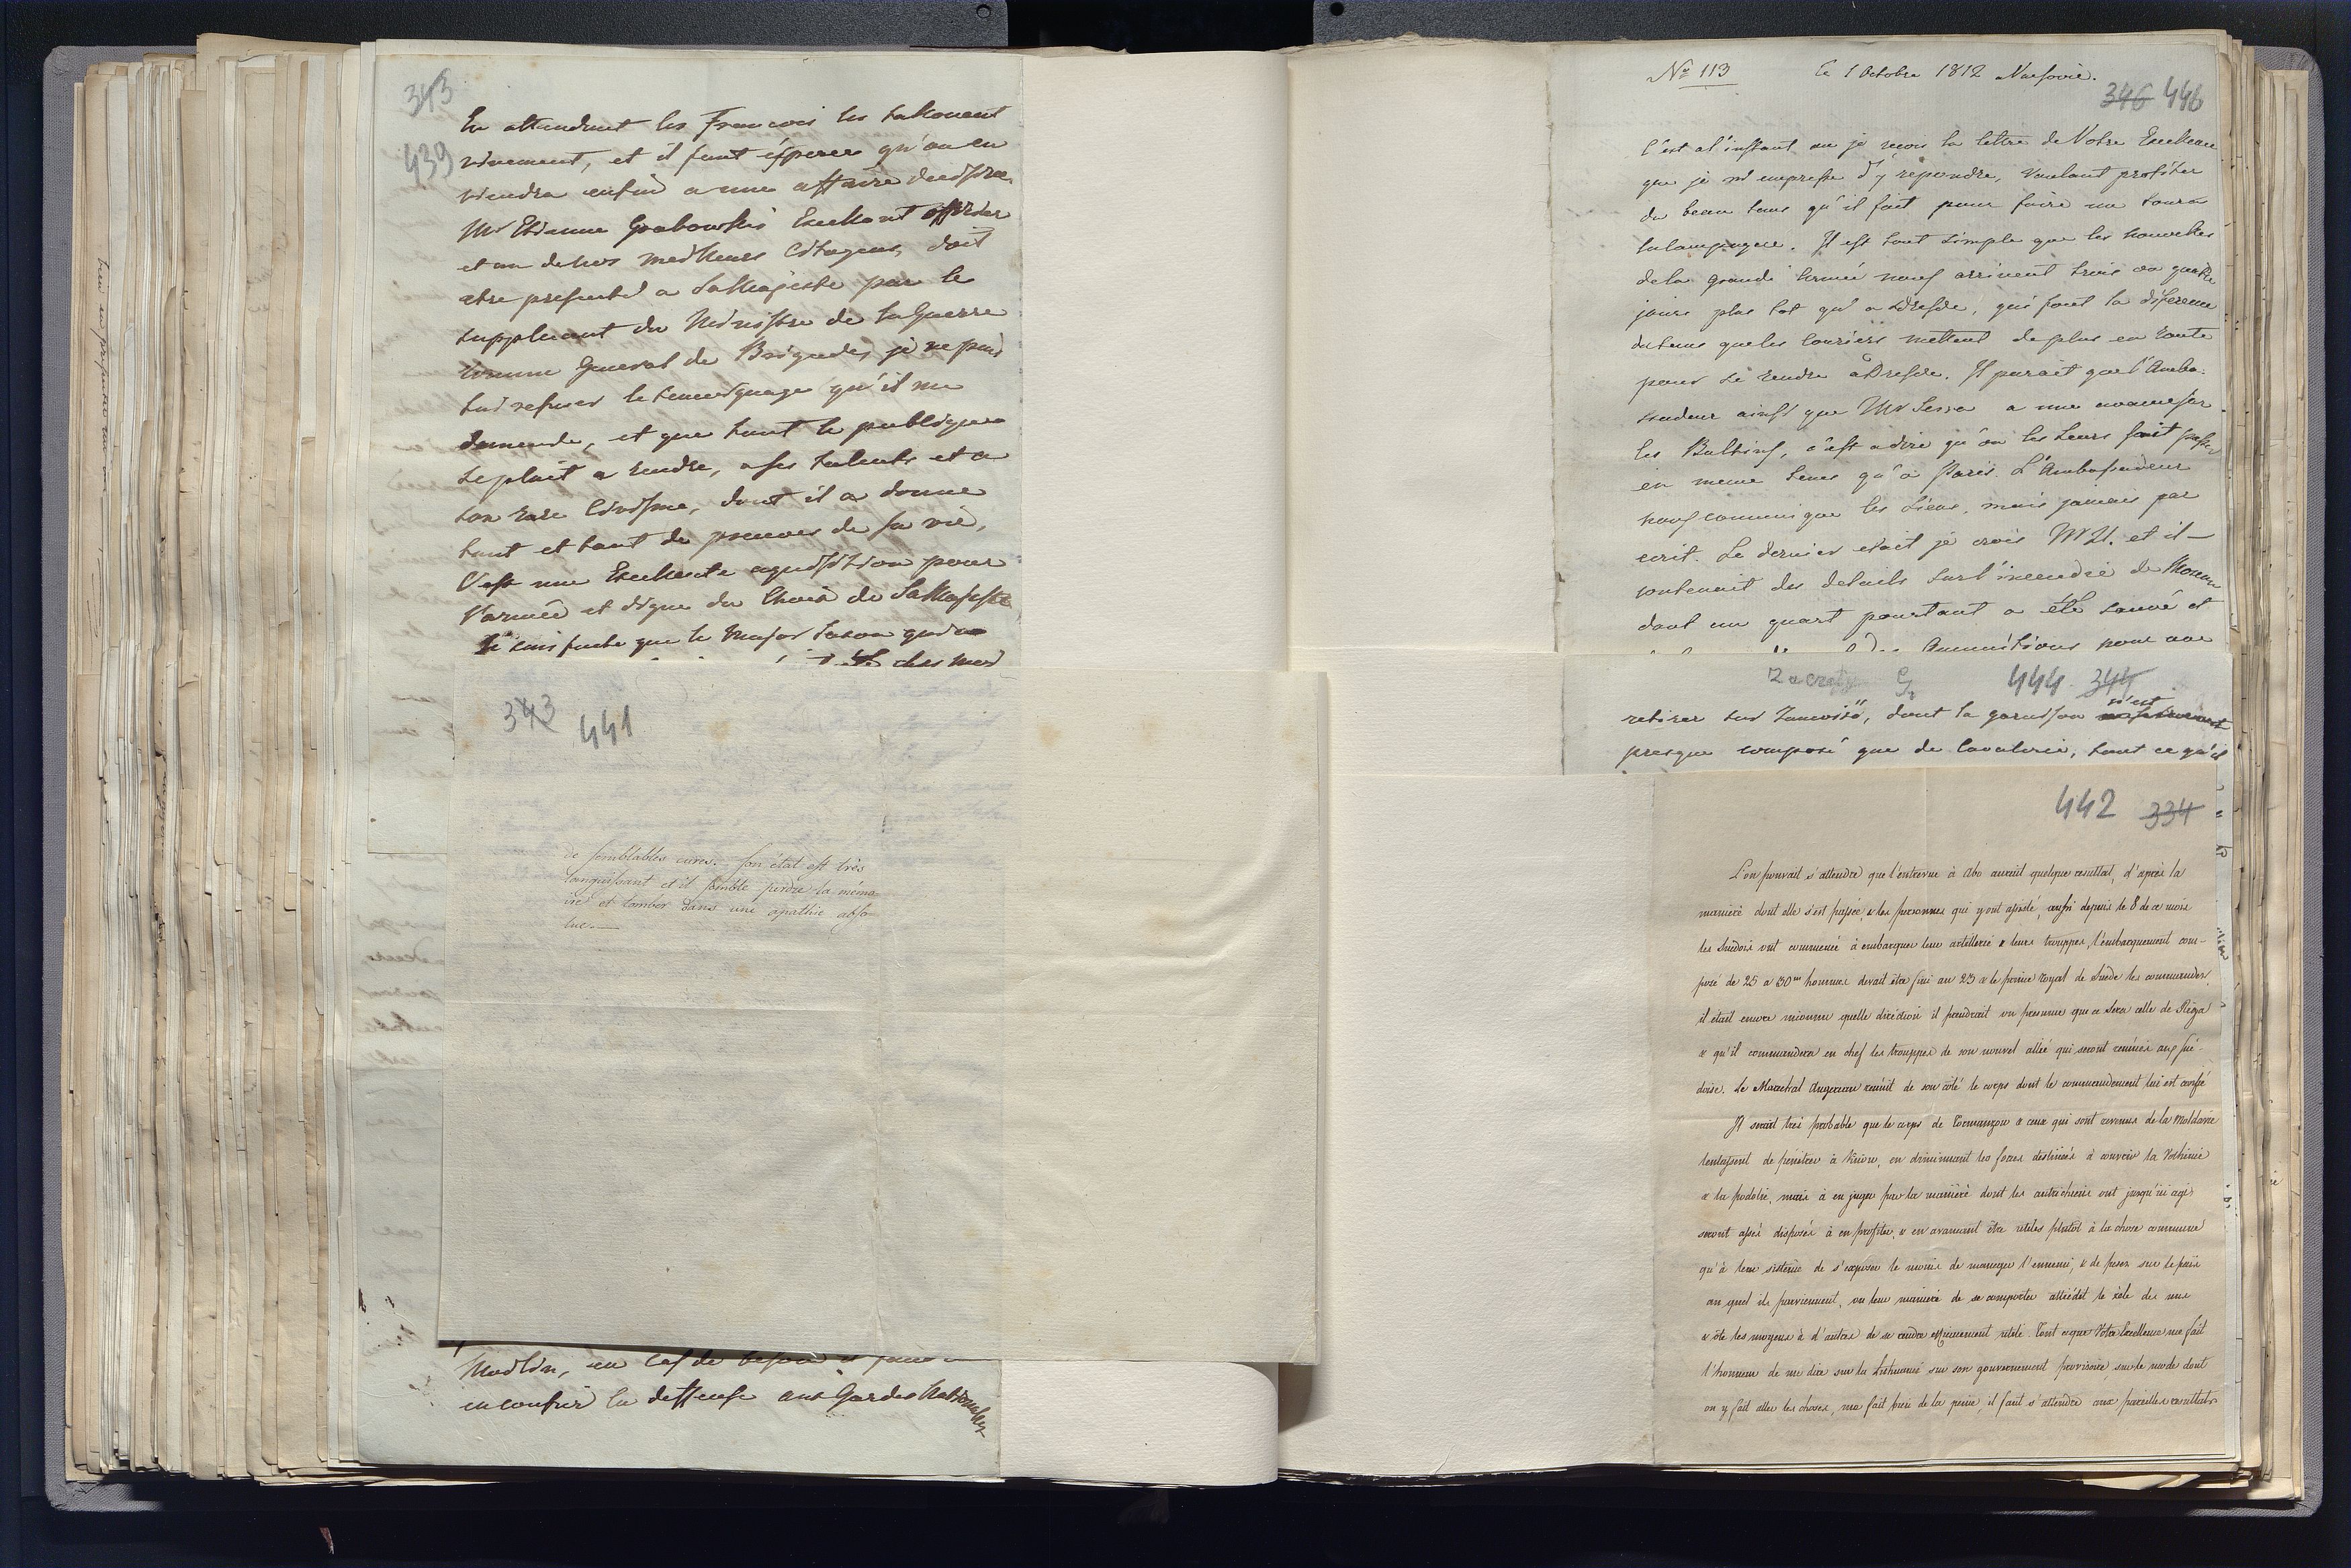 343
439
En attendant les Francois les tallonent
vivement, et il faut ésperer qu'on en
viendra enfin a une affaire decisive.
Mr Etienne Grabowski Excellent officier
et un de nos meilleurs Citoyens, doit
etre presenté a Sa Majesté par le
suppleant du Ministre de la Guerre
comme General de Brigade, je ne puis
lui refuser le temoignage qu'il me
demande, et que tout le publique
se plait a rendre, a ses talents et a
son rare Civisme, dont il a donné
tant et tant de preuves de sa vie,
C'est une Excellente aquisition pour
l'armée et digne du Choix de Sa Majesté
que le Major
chez moi
343 441
de semblables cures. Son état est très
languissant et il semble perdre la mémo-
ire et tomber dans une apathie abso-
lue.
Modlin, en cas de besoin
en confier la deffense aux Gardes Nationales
No 113 le 1 Octobre 1812 Varsovie.
346 446
C'est a l'instant ou je reçois la lettre de Votre Excellence
que je m'empresse d'y repondre, voulant profiter
du beau tems qu'il fait pour faire un tour a
la campagne. Il est tout simple que les nouvelles
de la grande Armée nous arrivent trois ou quatre
jours plus tot qu'a Dresde, qui font la diference
du tems que les Couriers mettent de plus en route
pour se rendre à Dresde. Il parait que l'Amba-
ssadeur ainsi que Mr Serra a une avance sur
les Bultins, c'est a dire qu'on les leurs fait passer
en meme tems qu'a Paris. L'Ambassadeur
nous comunique les siens, mais jamais par
ecrit. Le dernier etait je crois et il
contenait des details sur l'incendie de Moscou
dont un quart pourtant a été sauvé et
Ammunitions pour une
444 344
retirer sur Zamosc, dont la garnison n'est
presque composé que de Cavalerie, tout ce qu'il
442 334
L'on pouvait s'attendre que l'entrevue à Abo aurait quelque resultat, d'après la
manière dont elle s'est passée, & les personnes qui y ont assisté, aussi depuis le 8 de ce mois
les Suedois ont commencé à embarquer leur artillerie & leurs trouppes, l'embarquement com-
posé de 25 a 30m hommes devait être fini au 23 & le prince royal de Suède les commander,
il etait encore inconnu quelle direction il prendrait on presume que ce sera celle de Riga
& qu'il commandera en chef les trouppes de son nouvel allié qui seront reunies aux Sué-
dois. Le Marechal Augereau reunit de son côté le corps dont le commandement lui est confié
Il serait très probable que le corps de Tormanzow & ceux qui sont revenus de la Moldavie
tentassent de penetrer à Kiow, en diminuant les forces destinées à couvrir la Volhinie
& la podolie, mais à en juger par la manière dont les autrichiens ont jusqu'ici agi
seront assés disposés à en profiter, & en avancant être utiles plutot à la chose commune
qu'à leur sistème de s'exposer le moins de menager l'ennemi, & de peser sur le païs
au quel ils parviennent, ou leur manière de se comporter attiédit le zèle des uns
& ôte les moyens à d'autres de se rendre efficacement utile. Tout ce que Votre Excellence me fait
l'honneur de me dire sur la Lithuanie sur son gouvernement provisoire, sur le mode dont
on y fait aller les choses, me fait bien de la peine, il faut s'attendre aux pareilles resultats